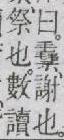 曰謝也
祭也數讀